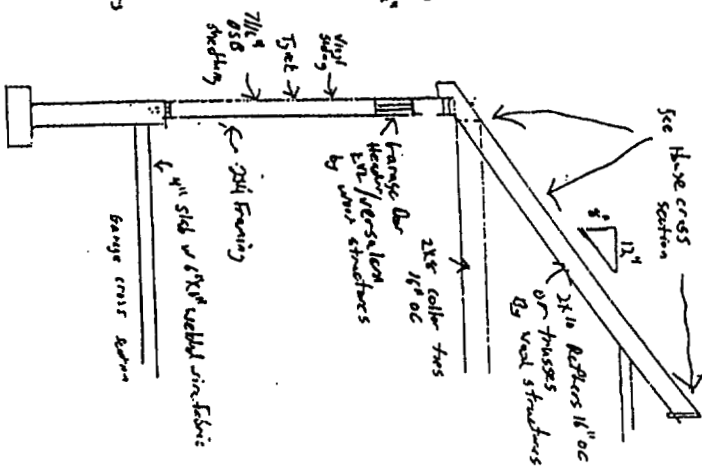 See House cross
section
12"
8"
2X10 Rafthers 16" OC
or trusses
By wood structures
2X8 collar ties
16" OC
Garage Door
Header
2X12 / versalam
by wood structures
Vinyl
siding
Tyvek
7/16"
OSB
sheathing
2X4 Framing
4" slab w 6"X6" welded wire fabric
Garage cross section